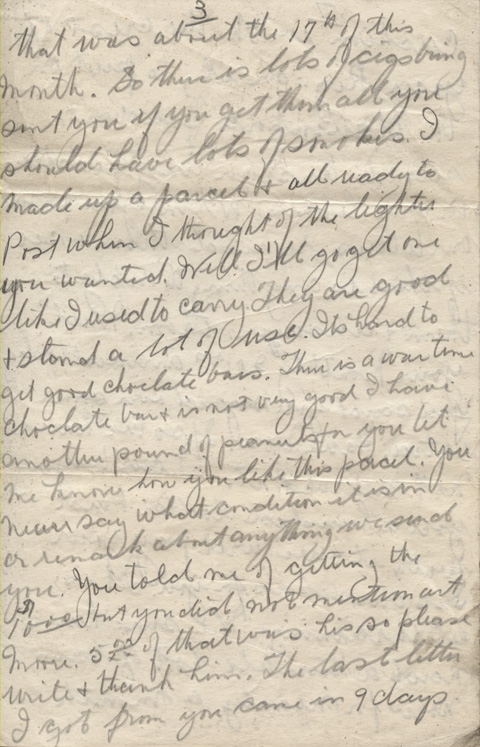 3
that was about the 17th of this
month. So there is lots of cigs being
sent you if you get them all you
should have lots of smokes. I
made up a parcel & all ready to
Post when I thought of the lighter
you wanted. Well I'll go get one
like I used to carry. They are good
& stand a lot of use. Its hard to
get good choclate bars. There is a war time
choclate bar & is not very good I have
another pound of peanuts for you let
me know how you like this parcel. You
never say what condition it is in
or remark about anything we send
you. You told me of getting the
$10.00 but you did not mention art
Moore. 5.00 of that was his so please
write & thank him. The last letter
I got from you came in 9 days.